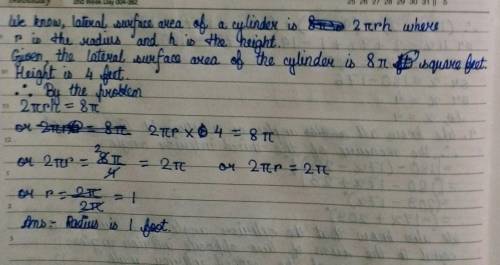 2nd Week Day 004-362
25 26 27 28 29 30 31
We know, lateral surface area of a cylinder is 2πrh where
r is the radius and h is the height.
Given the lateral surface area of the cylinder is 8π square feet.
Height is 4 feet.
∴ By the problem
2πrh = 8π
or 2πr × 4 = 8π
or 2πr = 8π/4 = 2π or 2πr = 2π
or r = 2π/2π = 1
Ans - Radius is 1 foot.